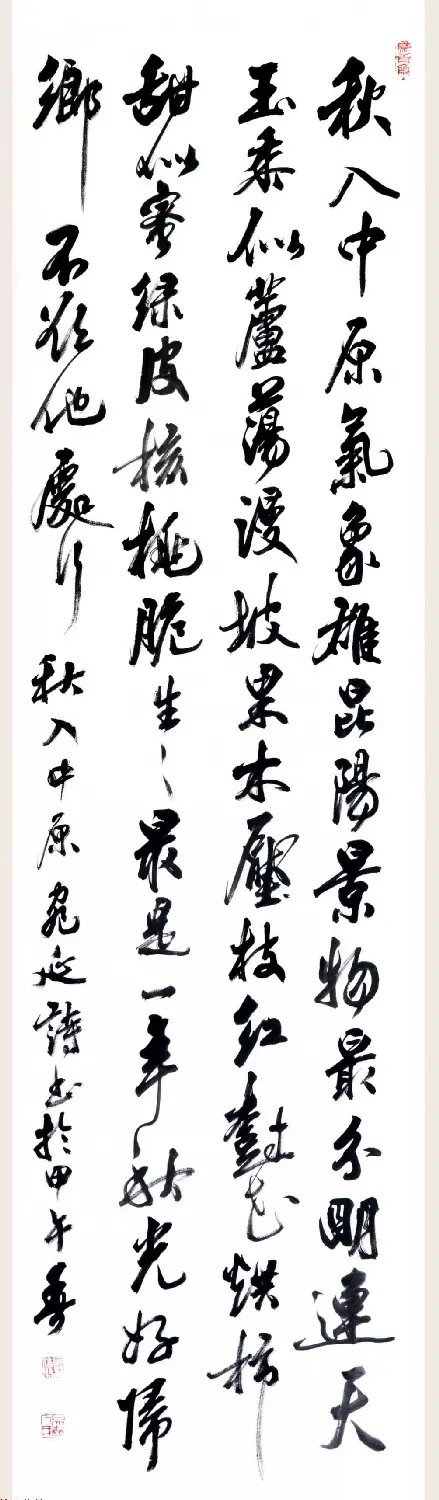 秋入中原氣象雄昆陽景物最分明連天
玉黍似蘆蕩漫坡果木壓枝紅對花烘柿
甜似蜜綠皮核桃脆生〻最是一年秋光好歸
鄉不欲他處行
秋入中原宛延詩書於甲午春